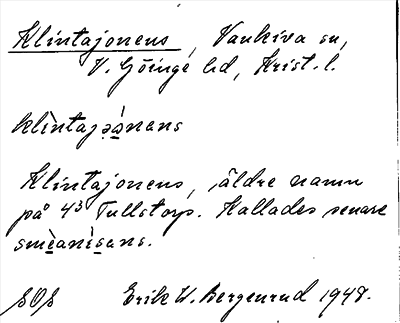 Klintajonens, Vankiva sn,
V. Göinge hd, Krist. l.
klìntajɔ̀nans
Klintajonens, äldre namn
på 4³ Tullstorp. Kallades senare
smèanìsans.
SOS Erik W. Bergenrud 1948.